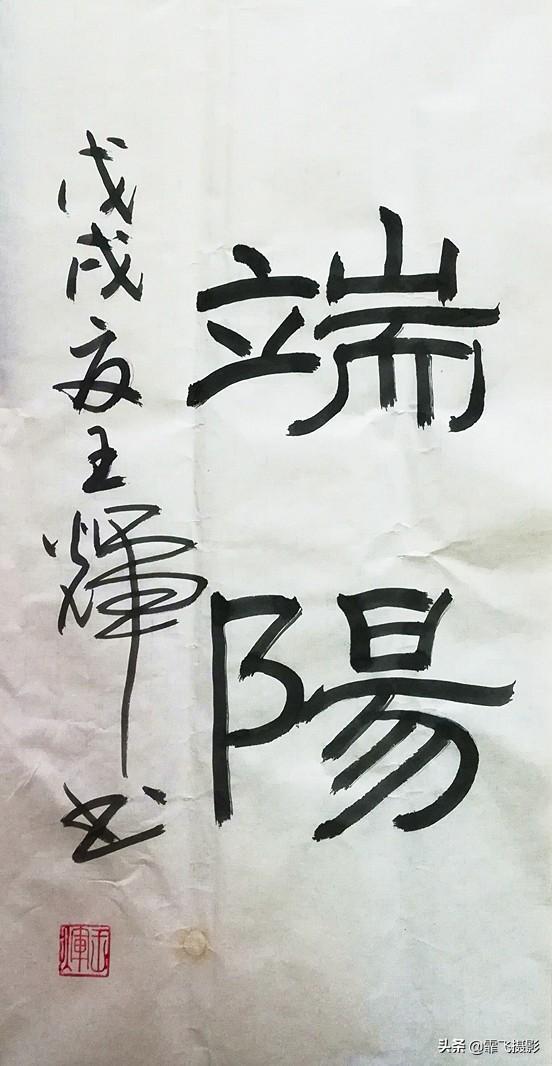 端陽
戊戌夏王輝书
王輝
头条 @霏飞摄影